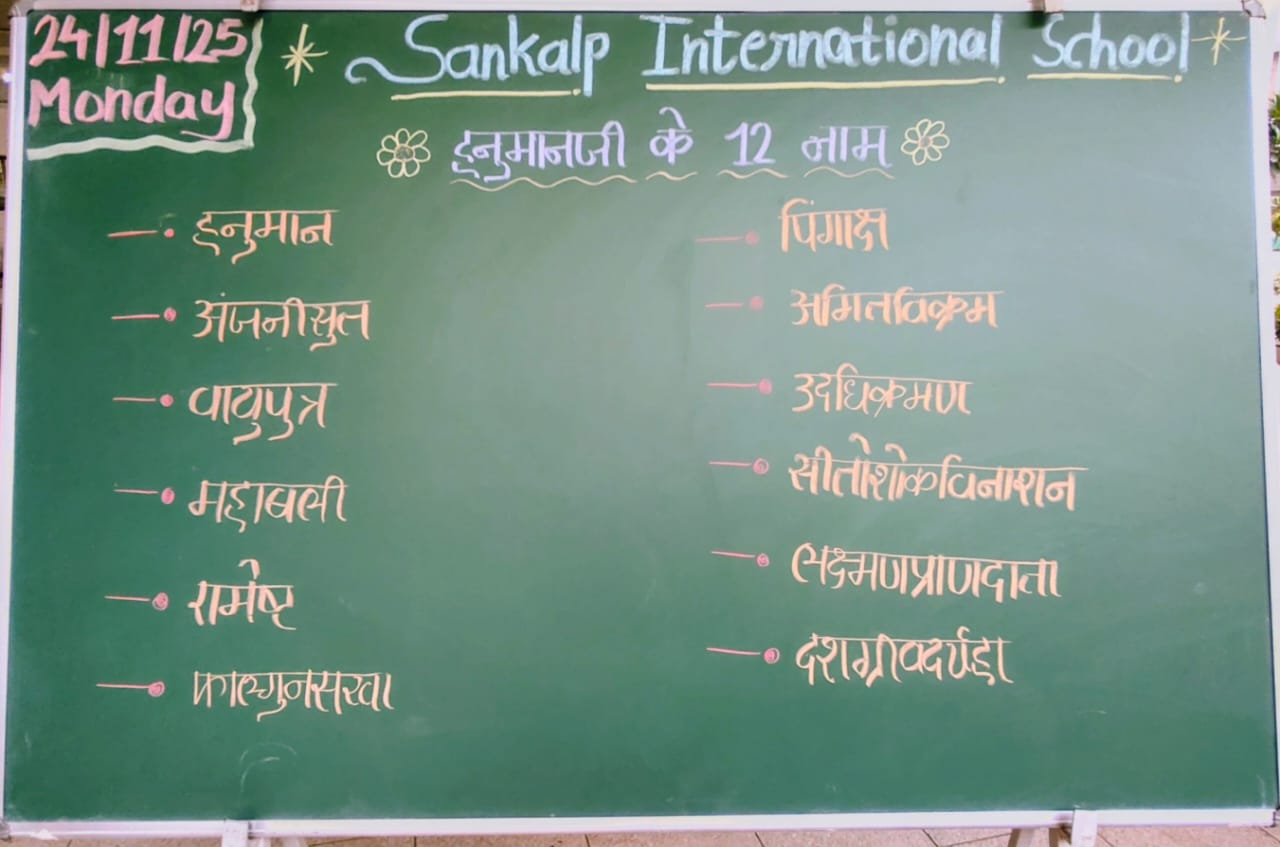 24/11/25
Monday
Sankalp International School
हनुमानजी के 12 नाम
हनुमान
अंजनीसुत
वायुपुत्र
महाबली
रामेष्ट
फाल्गुनसखा
पिंगाक्ष
अमितविक्रम
उदधिक्रमण
सीतोशोकविनाशन
लक्ष्मणप्राणदाता